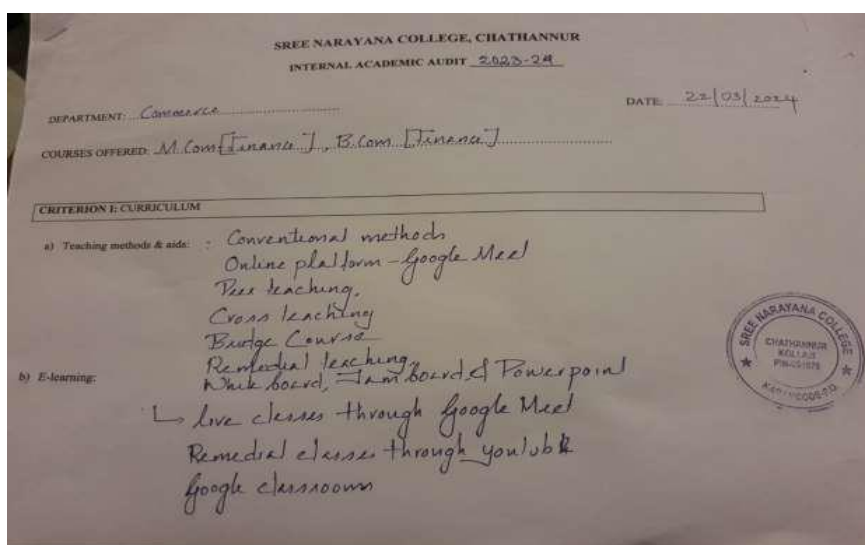 SREE NARAYANA COLLEGE, CHATHANNUR
INTERNAL ACADEMIC AUDIT 2023-24
DEPARTMENT: Commerce
DATE: 22/03/2024
COURSES OFFERED: M.Com [Finance], B.Com [Finance]
CRITERION I: CURRICULUM
a) Teaching methods & aids: : Conventional methods
Online platform - Google Meet
Peer teaching,
Cross teaching
Bridge Course
Remedial teaching,
White board, Jam board & Powerpoint
b) E-learning:
↳ live classes through Google Meet
Remedial classes through youtube
Google classrooms
SREE NARAYANA COLLEGE
CHATHANNUR
KOLLAM